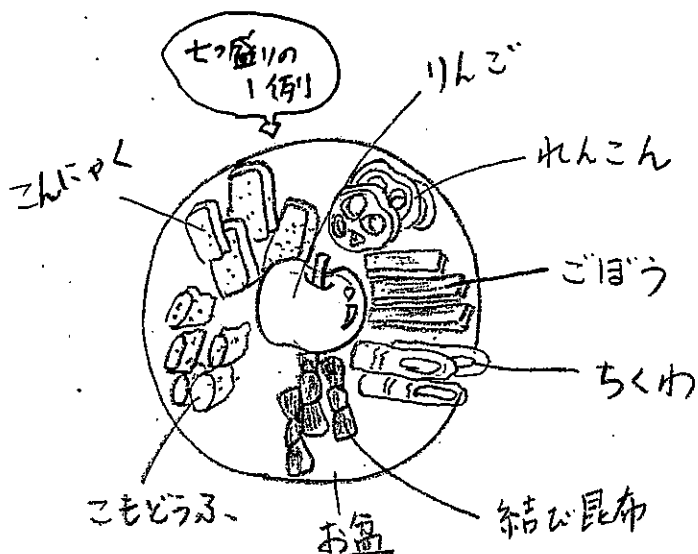 七つ盛りの
1例
りんご
れんこん
こんにゃく
ごぼう
ちくわ
こもどうふ
結び昆布
お盆